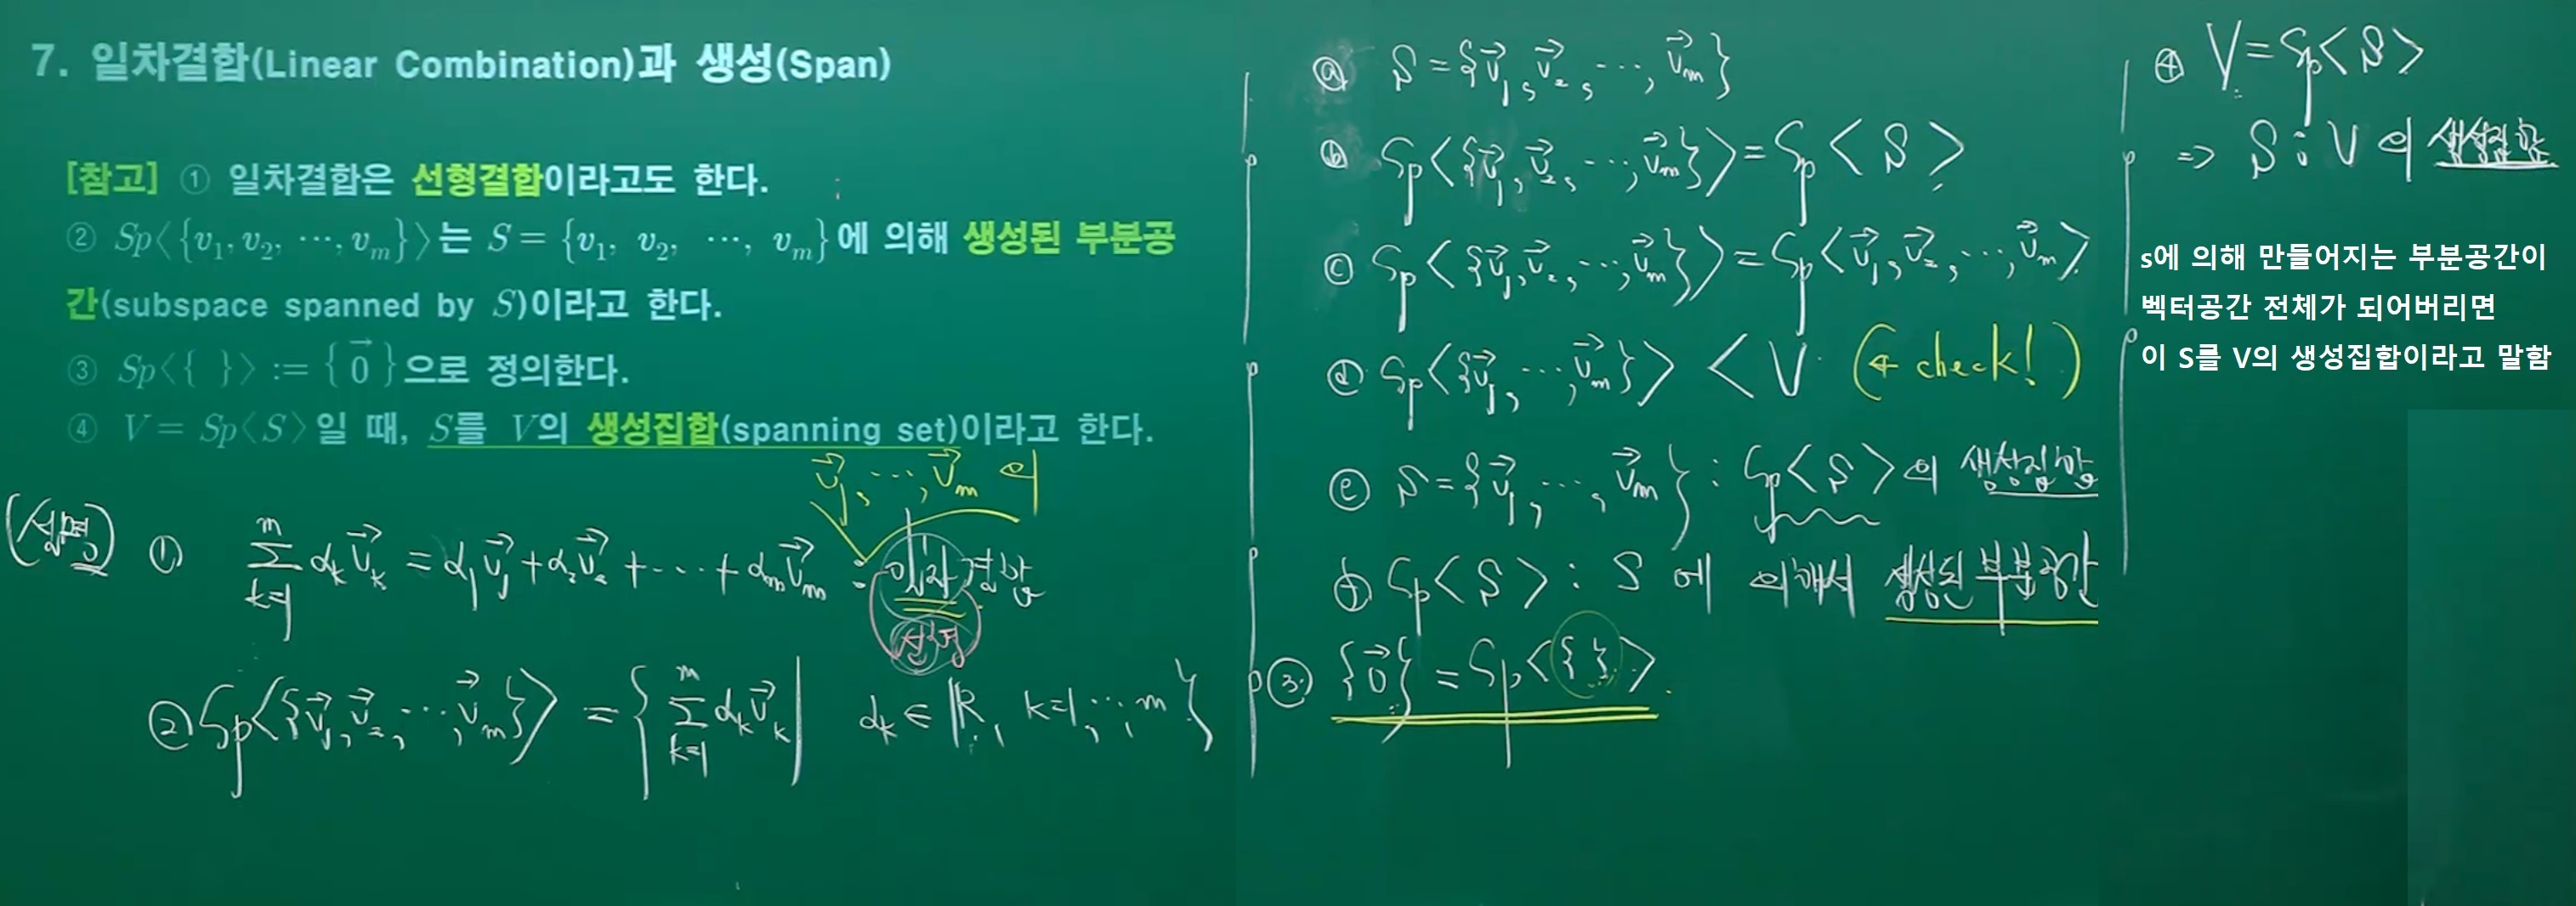 7. 일차결합(Linear Combination)과 생성(Span)
[참고] ① 일차결합은 선형결합이라고도 한다.
② Sp⟨{v₁, v₂, ⋯, vₘ}⟩는 S = {v₁, v₂, ⋯, vₘ}에 의해 생성된 부분공
간(subspace spanned by S)이라고 한다.
③ Sp⟨{ }⟩ := {0⃗}으로 정의한다.
④ V = Sp⟨S⟩일 때, S를 V의 생성집합(spanning set)이라고 한다.
v⃗₁, ⋯, v⃗ₘ의
(설명) ① ∑ₖ₌₁ᵐ αₖv⃗ₖ = α₁v⃗₁ + α₂v⃗₂ + ⋯ + αₘv⃗ₘ : 일차결합
선형
② Sp⟨{v⃗₁, v⃗₂, ⋯, v⃗ₘ}⟩ = {∑ₖ₌₁ᵐ αₖv⃗ₖ | αₖ ∈ ℝ, k=1, ⋯, m}
ⓐ S = {v⃗₁, v⃗₂, ⋯, v⃗ₘ}
ⓑ Sp⟨{v⃗₁, v⃗₂, ⋯, v⃗ₘ}⟩ = Sp⟨S⟩
ⓒ Sp⟨{v⃗₁, v⃗₂, ⋯, v⃗ₘ}⟩ = Sp⟨v⃗₁, v⃗₂, ⋯, v⃗ₘ⟩
ⓓ Sp⟨{v⃗₁, ⋯, v⃗ₘ}⟩ < V (← check!)
ⓔ S = {v⃗₁, ⋯, v⃗ₘ} : Sp⟨S⟩의 생성집합
ⓕ Sp⟨S⟩ : S에 의해서 생성된 부분공간
③ {0⃗} = Sp⟨{ }⟩.
④ V = Sp⟨S⟩
⇒ S : V의 생성집합
s에 의해 만들어지는 부분공간이
벡터공간 전체가 되어버리면
이 S를 V의 생성집합이라고 말함